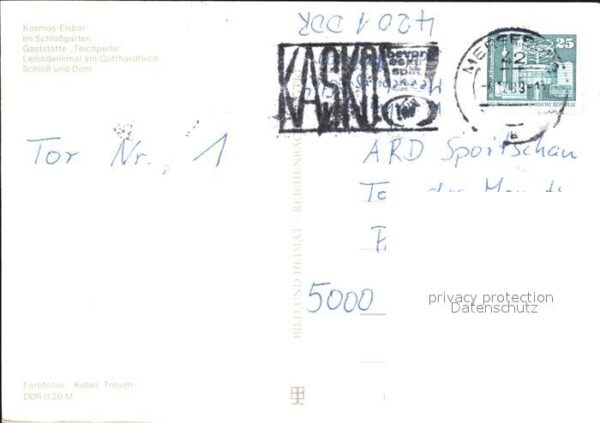 Kosmos-Eisbar
Im Schloßgarten
Gaststätte „Teichperle"
Lenindenkmal am Gotthardteich
Schloß und Dom
4201 DDR
KASKO
bevor
es zu
spät
ist
42
25
Tor Nr. 1
ARD Sportschau
5000
BILD UND HEIMAT · REICHENBACH
privacy protection
Datenschutz
Farbfotos: Kober, Treuen
DDR 0,20 M